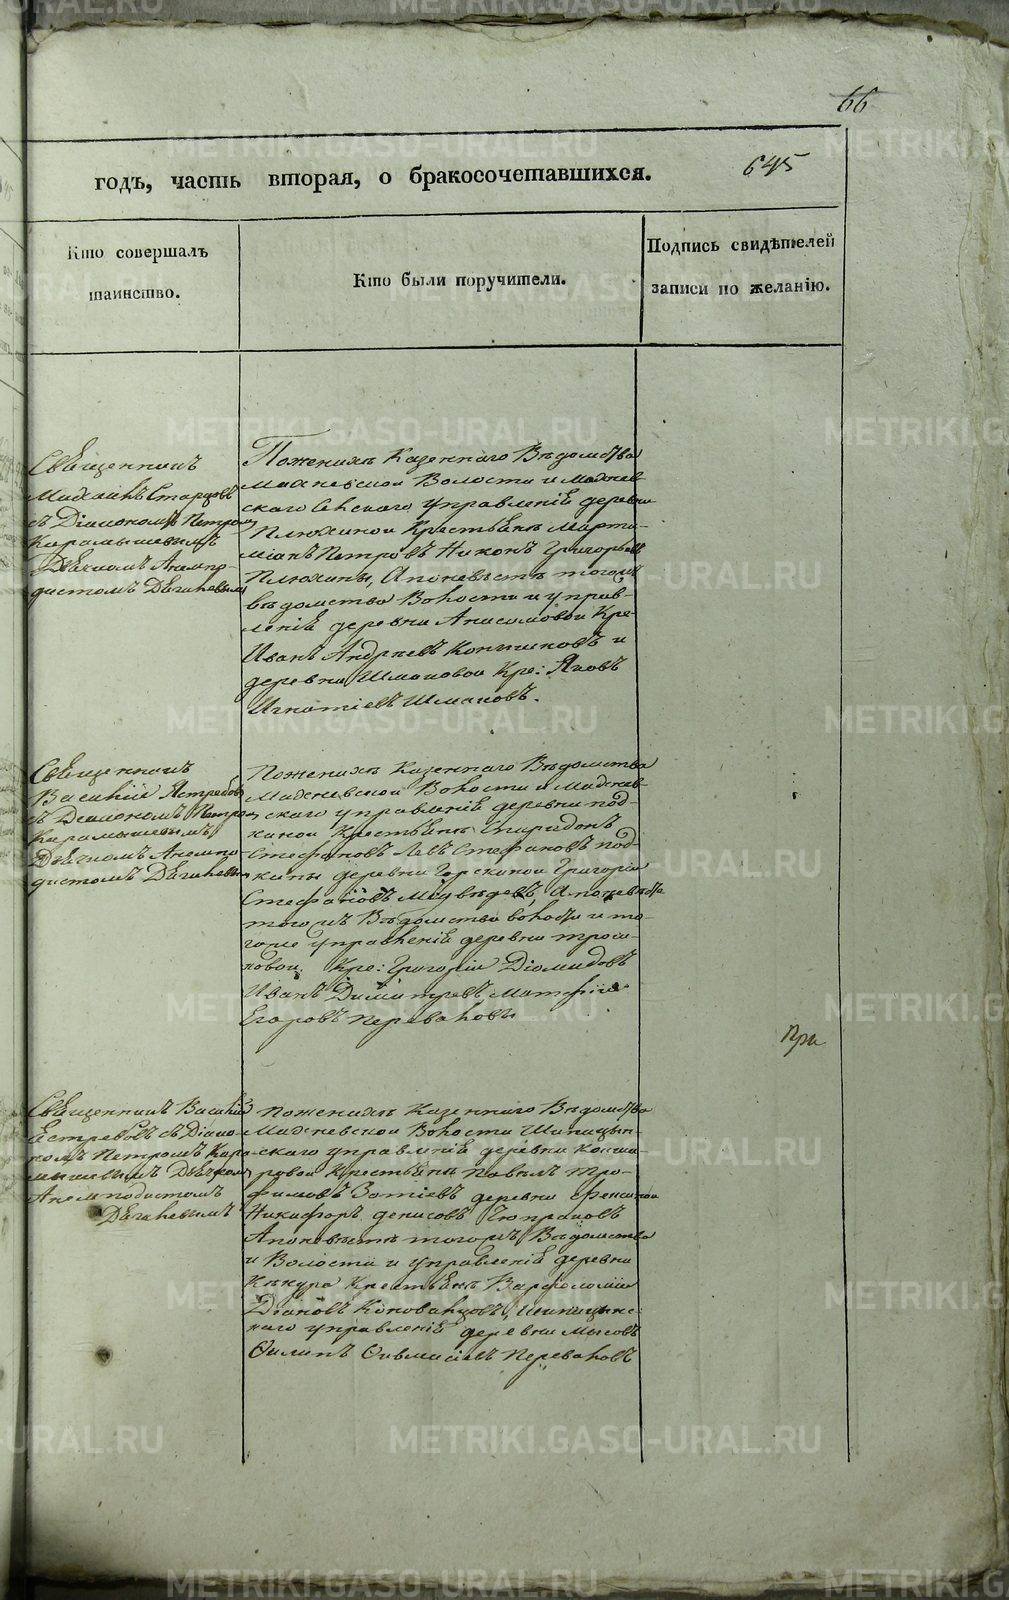 66
645
годъ, часть вторая, о бракосочетавшихся.
Кто совершалъ
таинство.
Кто были поручители.
Подпись свидѣтелей
записи по желанію.
Священникъ
Михаилъ Старцовъ
съ Діакономъ Петромъ
Карамышевымъ
Дьячкомъ Анемпо-
дистомъ Дягилевымъ
Поженихѣ Казеннаго Вѣдомства
Махневской Волости и Махнев-
скаго Сельскаго управленія деревни
Плюхиной Крестьяне Марти-
міанъ Петровъ Никонъ Григорьевъ
Плюхины, Апоневѣстѣ тогожъ
вѣдомства Волости и управ-
ленія деревни Анисимовой Кре:
Иванъ Андреевъ и
деревни Шмаковой Кре: Яковъ
Игнатіевъ Шмаковъ.
Священникъ
Василій Ястребовъ
съ Діакономъ Петро-
Карамышевымъ
Дьячкомъ Анемпо-
дистомъ Дягилевымъ
Поженихѣ Казеннаго Вѣдомства
Махневской Волости и Махнев-
скаго управленія деревни Под-
киной Крестьяне Спиридонъ
Стефановъ Левъ Стефановъ Под-
кины деревни Горскиной Григорій
Стефановъ Медвѣдевъ, Апоневѣстѣ
тогожъ Вѣдомства волости и то-
гоже управленія деревни Троши-
ковой. Кре: Григорій Діомидовъ
Иванъ Димитревъ, Матфій
Егоровъ Переваловы
При
Священникъ Василій
Естребовъ съ Діако-
номъ Петромъ Кара-
мышевымъ Дьячкомъ
Анемподистомъ
Дягилевымъ
Поженихѣ Казеннаго Вѣдомства
Махневской Волости Шипицын-
скаго управленія деревни Кокша-
ровой Крестьяне Павелъ Тро-
фимовъ Зотіевъ деревни
Никифоръ денисовъ
Апоневѣстѣ тогожъ Вѣдомства
и Волости и управленія деревни
Кекура Крестьяне Варфоломей
Діановъ Коновальцовъ, Шипицынс-
каго управленія деревни Мысовъ
Филипъ Переваловъ